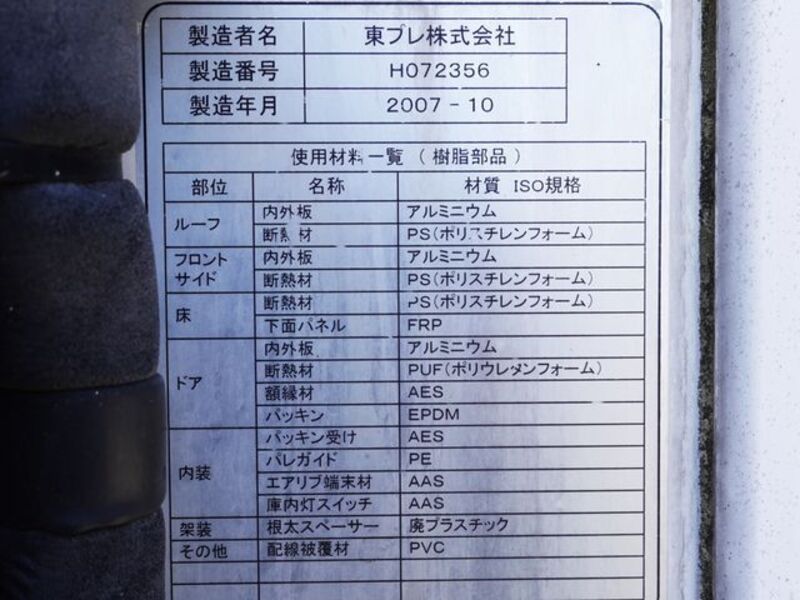 製造者名 東プレ株式会社
製造番号 H072356
製造年月 2007 - 10
使用材料一覧 ( 樹脂部品 )
部位 名称 材質 ISO規格
ルーフ 内外板 アルミニウム
断熱材 PS(ポリスチレンフォーム)
フロント サイド 内外板 アルミニウム
断熱材 PS(ポリスチレンフォーム)
床 断熱材 PS(ポリスチレンフォーム)
下面パネル FRP
ドア 内外板 アルミニウム
断熱材 PUF(ポリウレタンフォーム)
額縁材 AES
パッキン EPDM
内装 パッキン受け AES
パレガイド PE
エアリブ端末材 AAS
庫内灯スイッチ AAS
架装 根太スペーサー 廃プラスチック
その他 配線被覆材 PVC